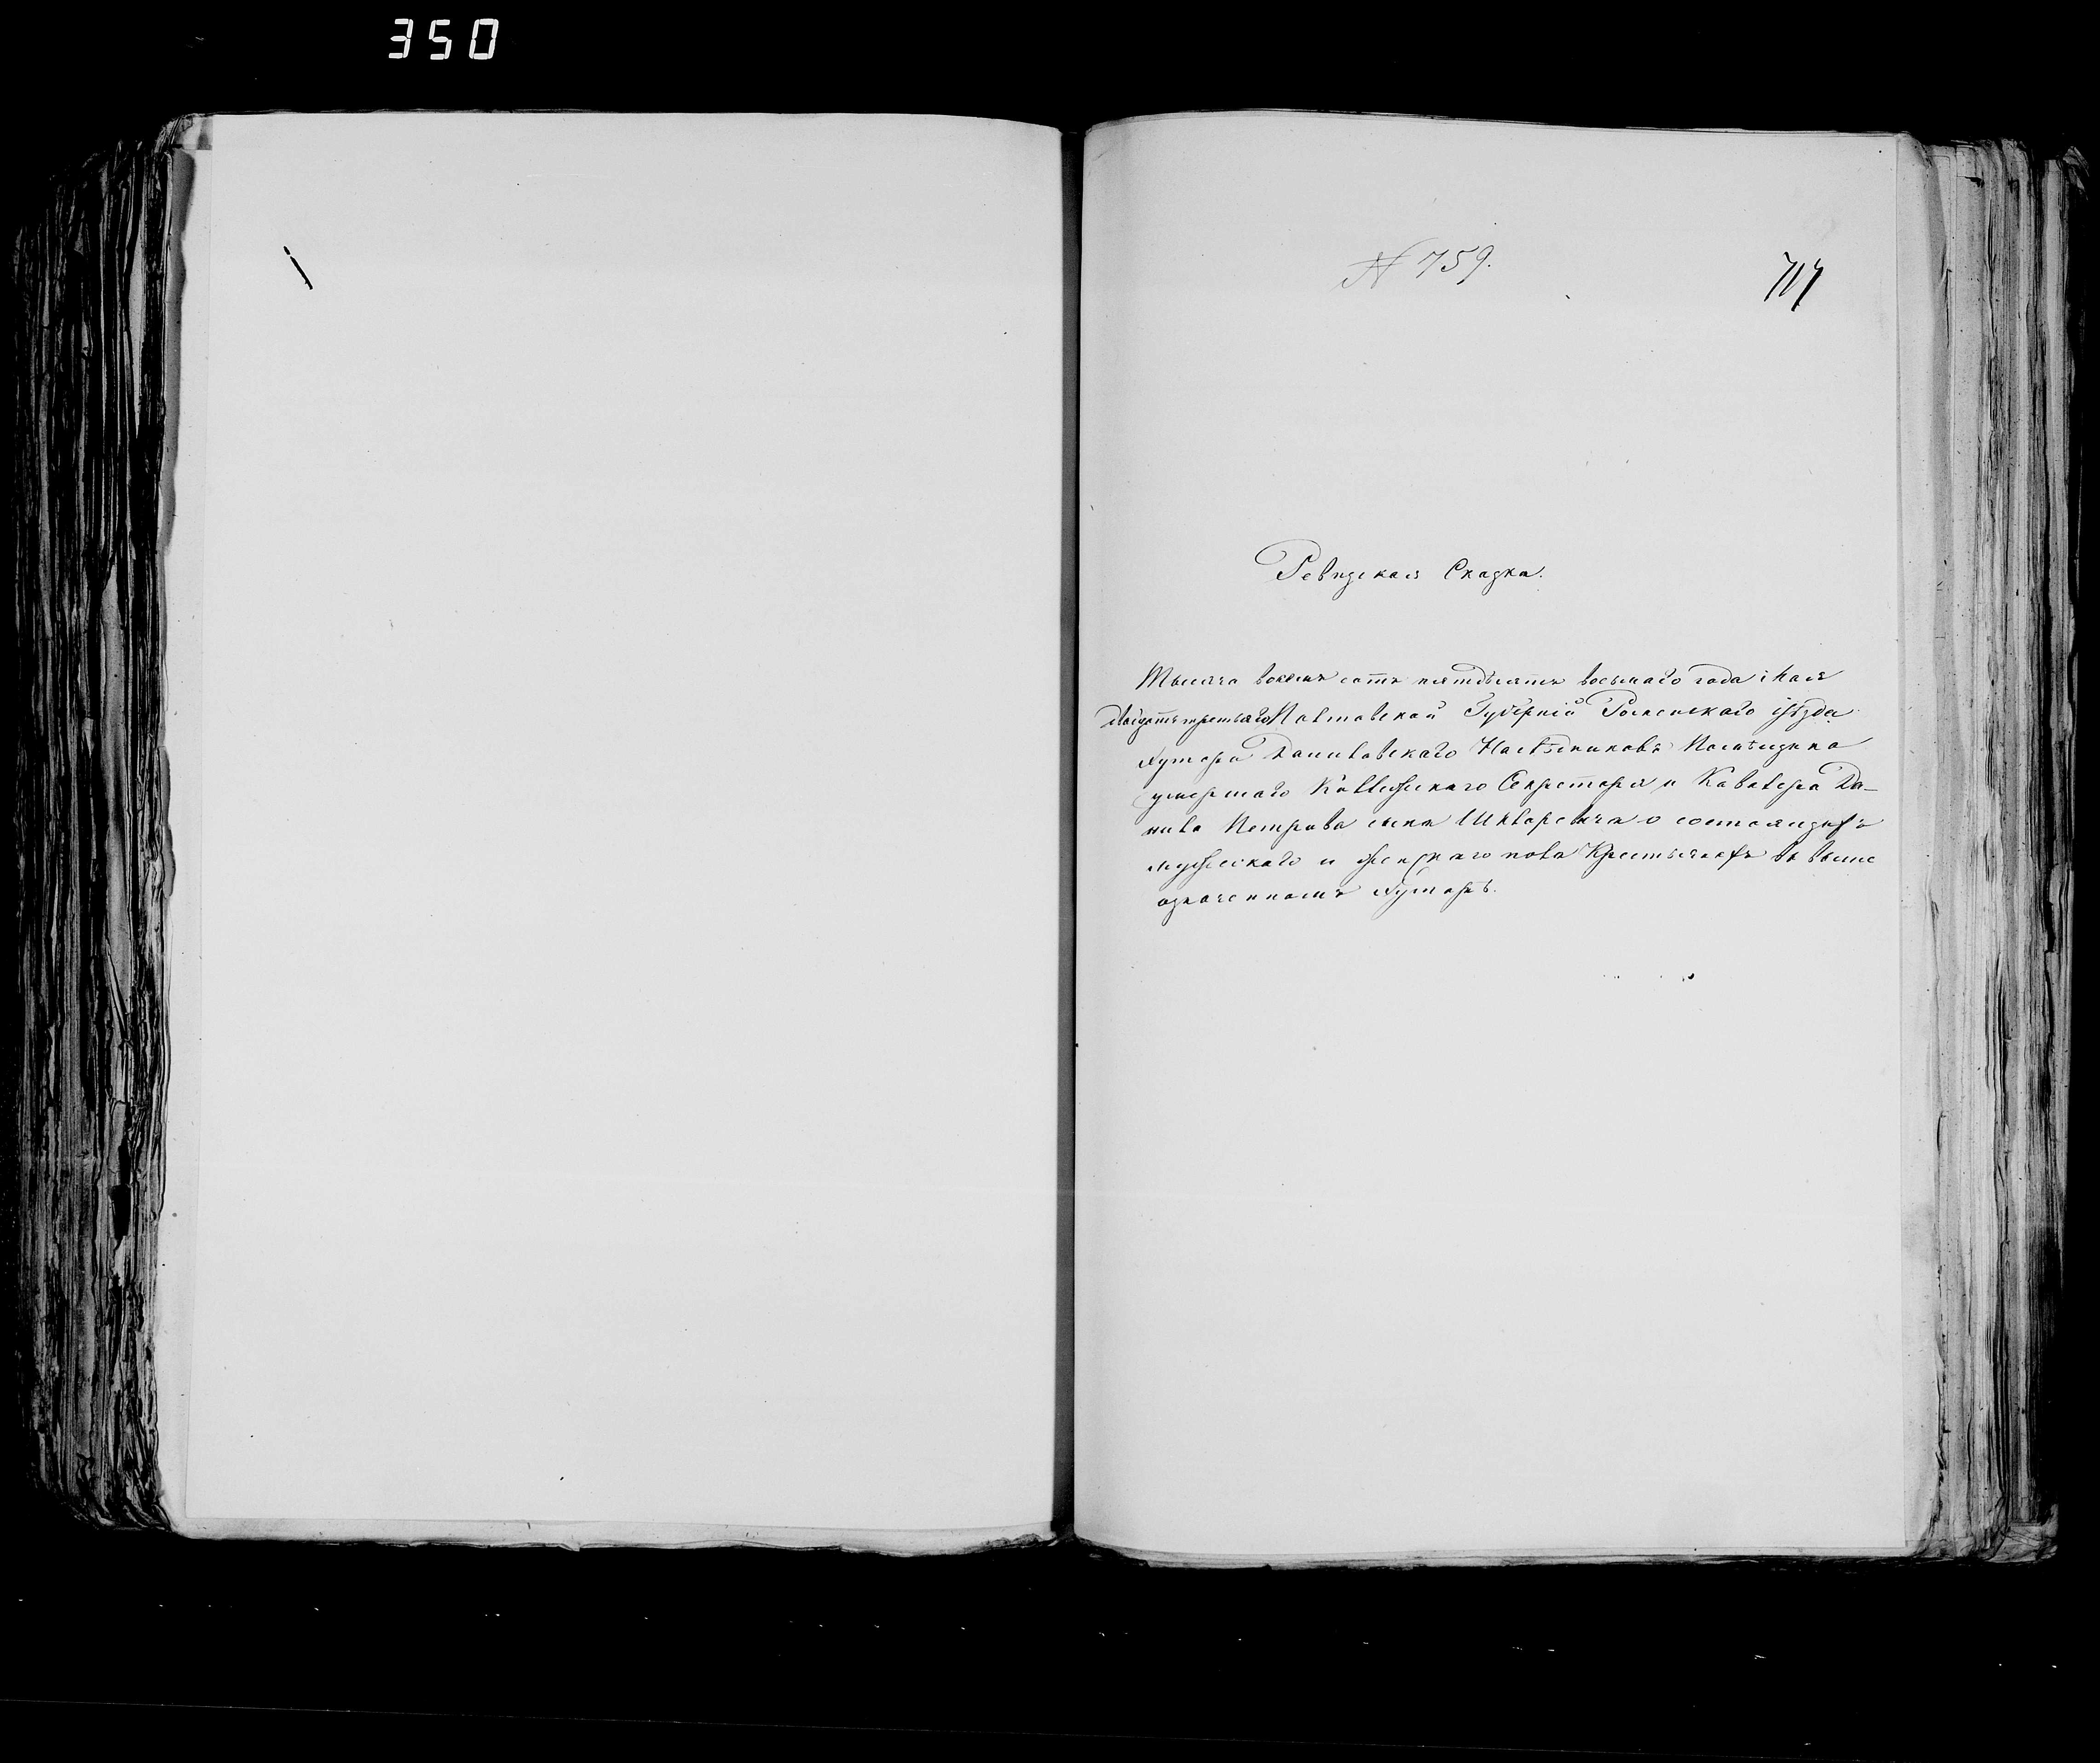 350
N 759.
717
Ревизская Сказка.
Тысяча восемь сотъ пятдѣсятъ восьмаго года Мая
двадцать третьяго Полтавской Губерніи Роменскаго уѣзда
хутора Даниловскаго Наслѣдниковъ Помѣщика
умершаго Коллежскаго Секретаря и Кавалера Да-
нила Петрова сына Шкларевича о состоящихъ
мужескаго и женскаго пола Крестьянахъ въ выше
означенномъ хуторѣ.